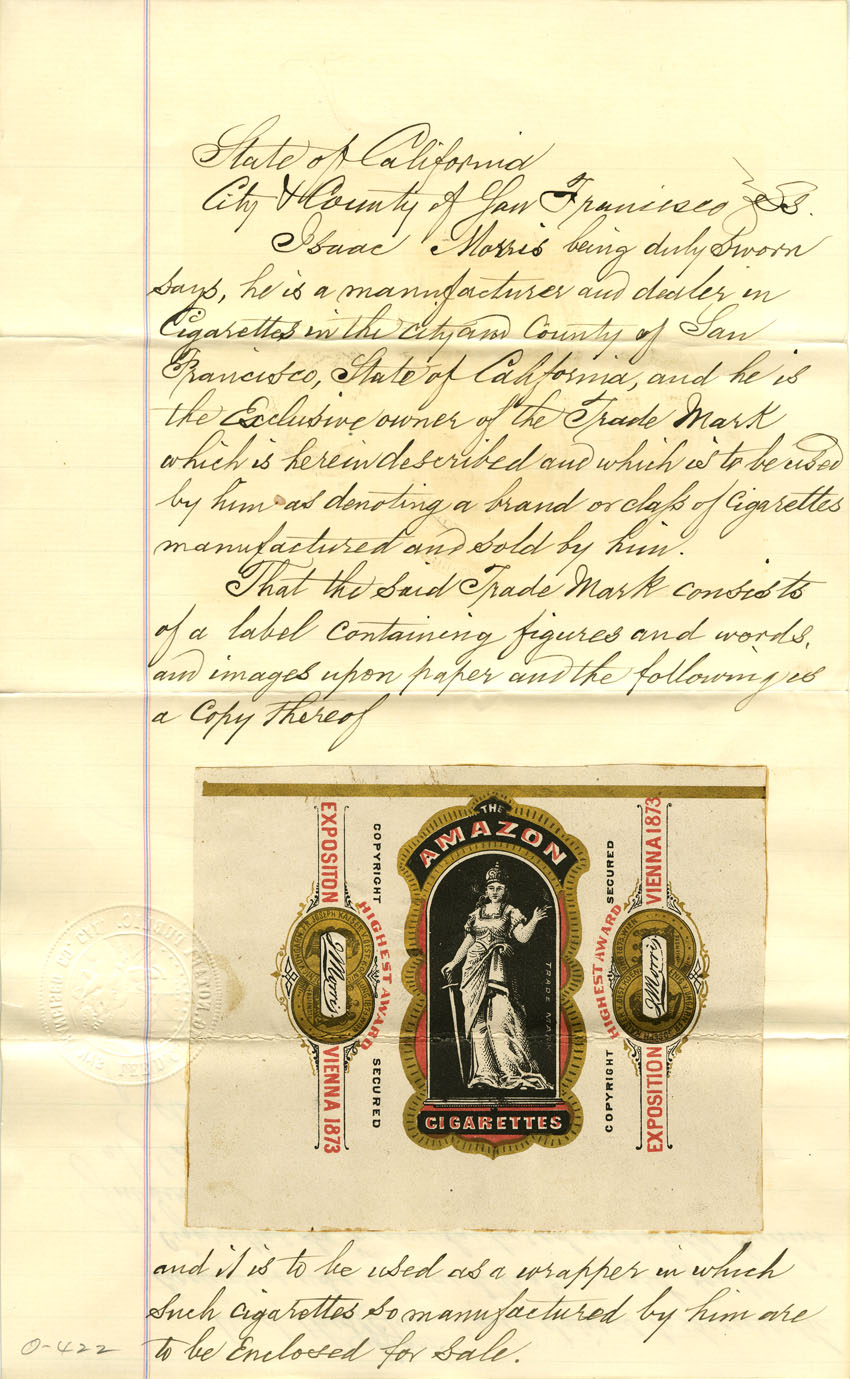 State of California
City & County of San Francisco } SS.
Isaac Morris being duly Sworn
says, he is a manufacturer and dealer in
Cigarettes in the city and County of San
Francisco, State of California, and he is
the Exclusive owner of the Trade Mark
which is herein described and which is to be used
by him as denoting a brand or class of cigarettes
manufactured and sold by him.
That the said Trade Mark consists
of a label containing figures and words,
and images upon paper and the following is
a Copy thereof
EXPOSITON VIENNA 1873
I Morris
COPYRIGHT SECURED
HIGHEST AWARD
THE
AMAZON
TRADE MARK
CIGARETTES
HIGHEST AWARD
COPYRIGHT SECURED
EXPOSITION VIENNA 1873
I Morris
and it is to be used as a wrapper in which
such cigarettes so manufactured by him are
to be Enclosed for sale.
O-422